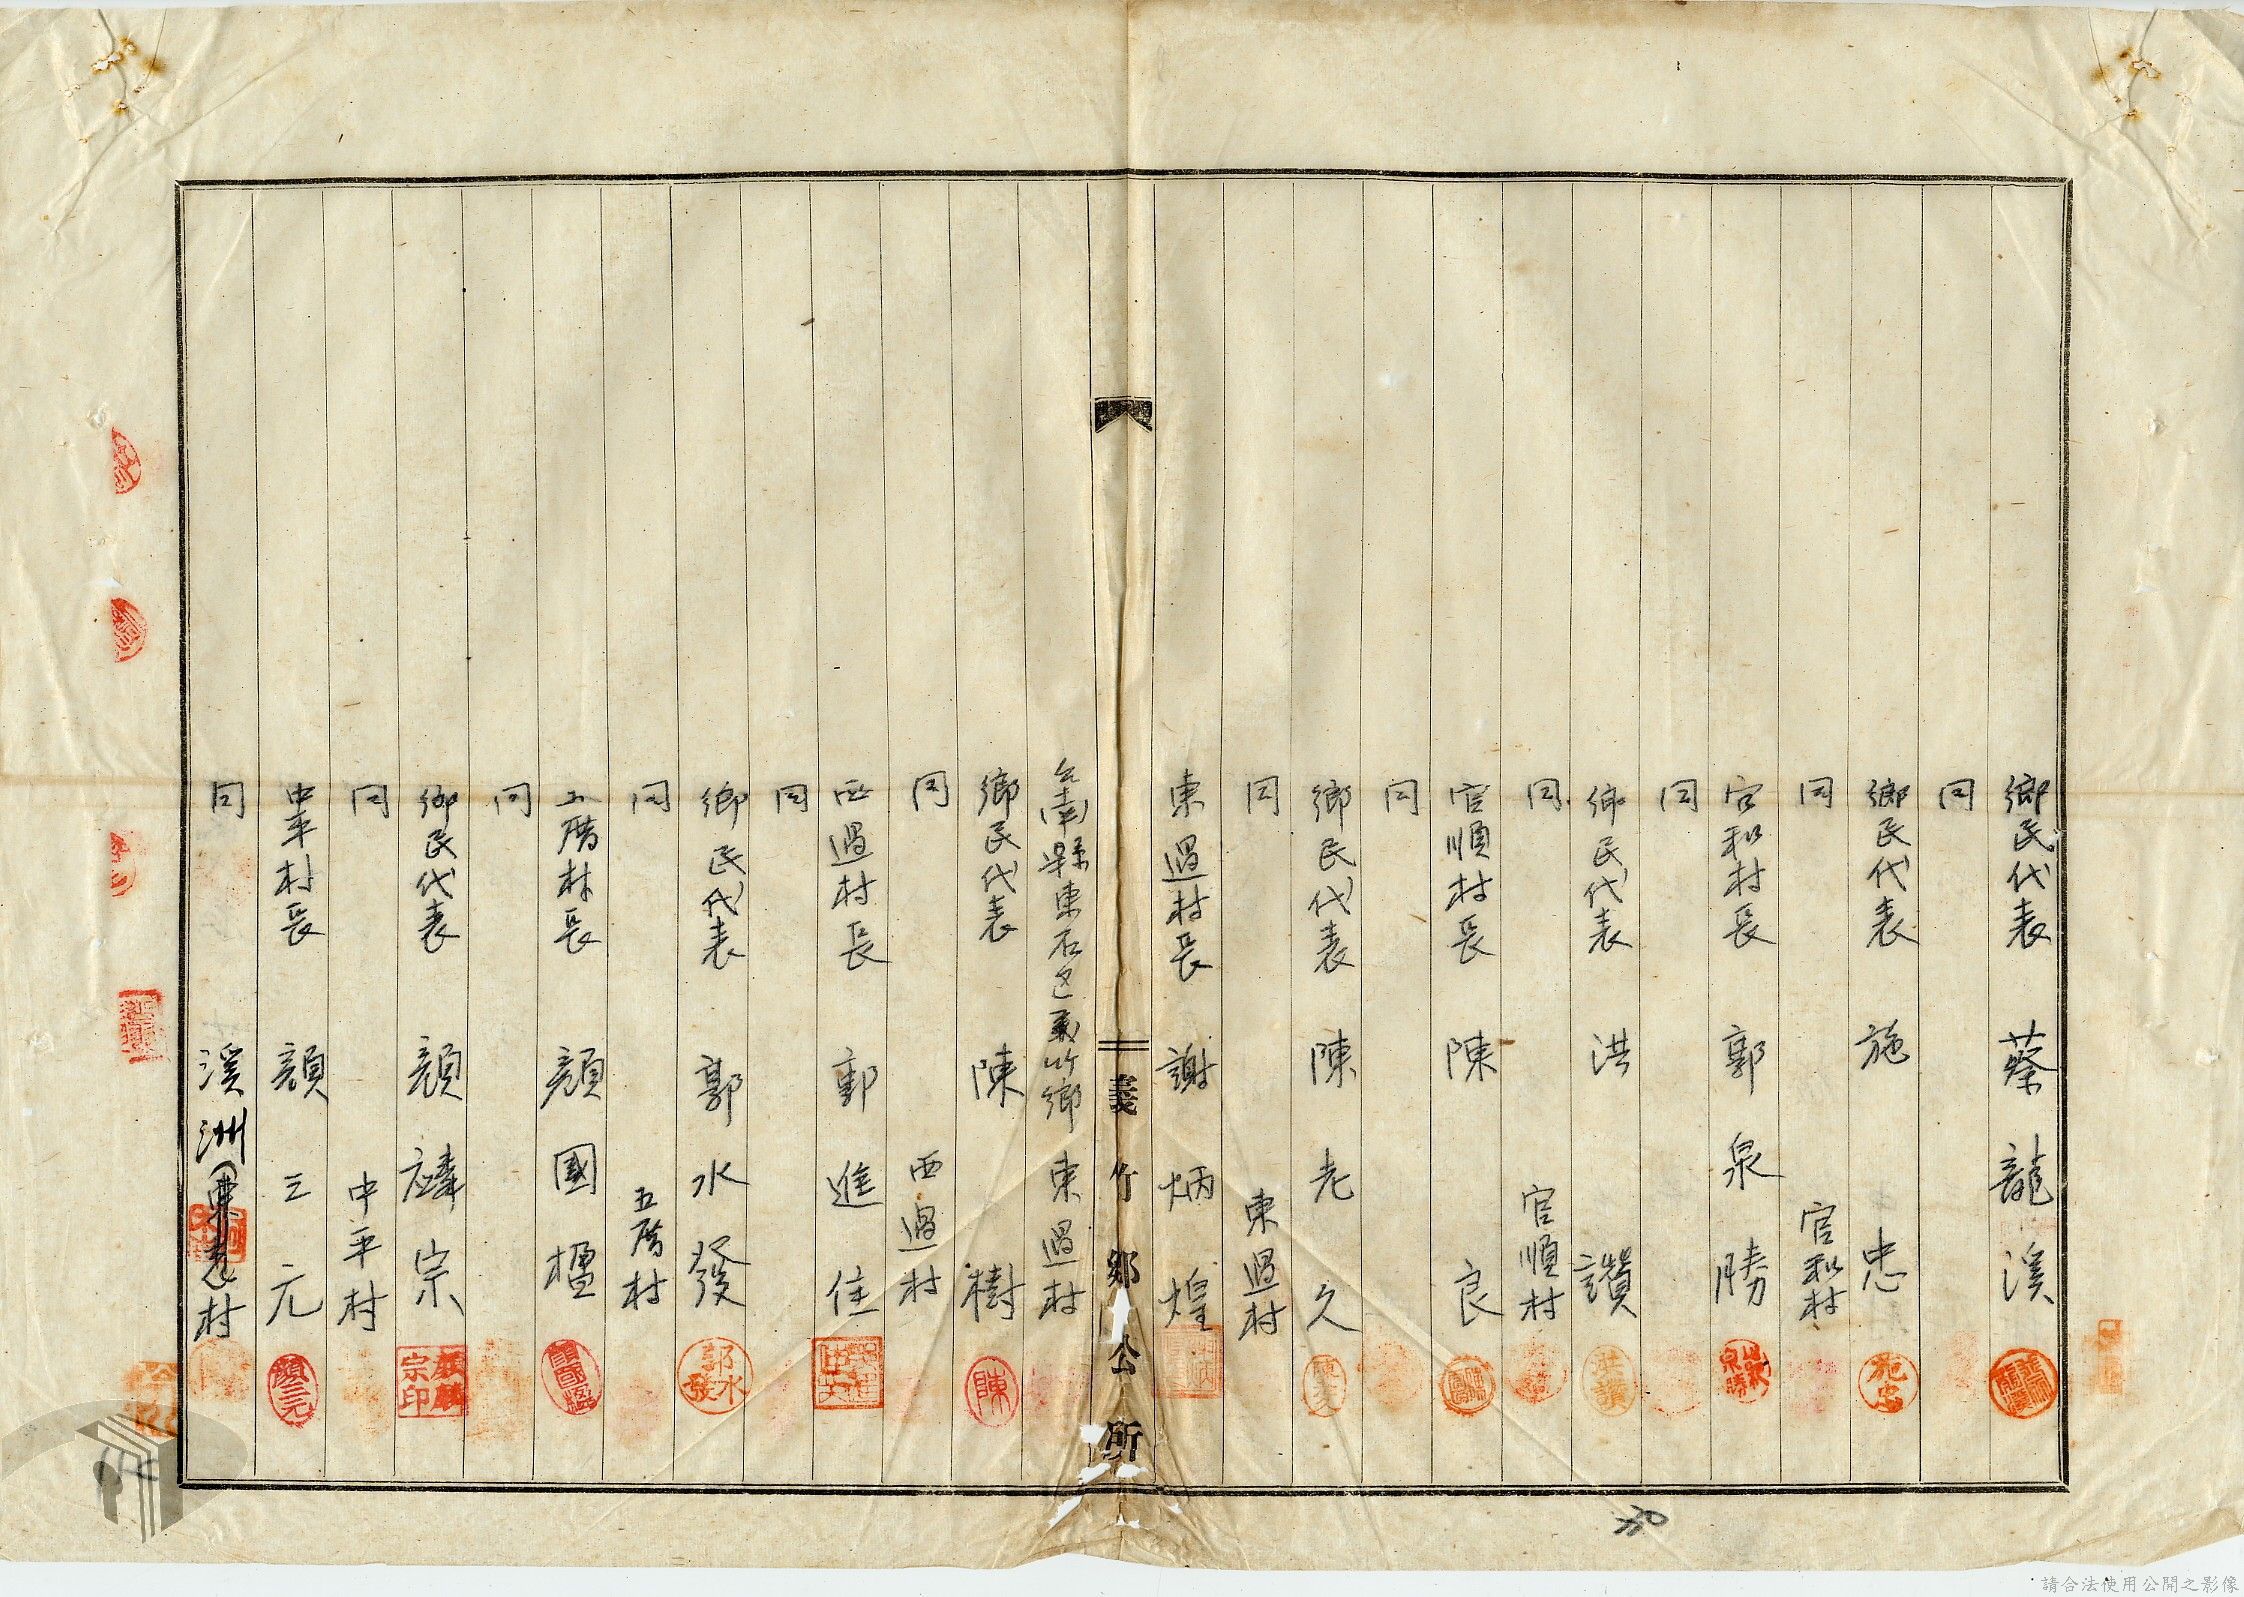 鄉民代表 蔡龍溪
同
鄉民代表 施忠
同 官和村
官和村長 郭泉勝
同
鄉民代表 洪讚
同 官順村
官順村長 陳良
同
鄉民代表 陳老久
同 東過村
東過村長 謝炳煌
義竹鄉公所
台南縣東石区義竹鄉東過村
鄉民代表 陳樹
同 西過村
西過村長 郭進住
同
鄉民代表 郭水發
同 五厝村
五厝村長 顏國楹
同
鄉民代表 顏麟宗
同 中平村
中平村長 顏三元
同 溪洲村
郭水發
麟宗印
顏三元
陳
施忠
洪讚
泉勝
請合法使用公開之影像